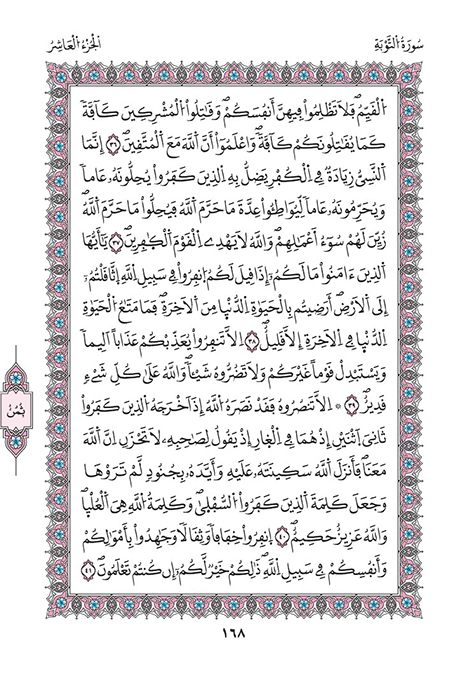 سُورَةُ التَّوْبَةِ
الجُزْءُ الْعَاشِرُ
اَ۬لْقَيِّمُ فَلَا تَظْلِمُواْ فِيهِنَّ أَنفُسَكُمْ وَقَٰتِلُواْ اُ۬لْمُشْرِكِينَ كَآفَّةٗ
كَمَا يُقَٰتِلُونَكُمْ كَآفَّةٗ وَاعْلَمُوٓاْ أَنَّ اَ۬للَّهَ مَعَ اَ۬لْمُتَّقِينَ ٣٦ إِنَّمَا
اَ۬لنَّسِيُّ زِيَادَةٞ فِے اِ۬لْكُفْرِ يَضِلُّ بِهِ اِ۬لذِينَ كَفَرُواْ يُحِلُّونَهُۥ عَاماٗ
وَيُحَرِّمُونَهُۥ عَاماٗ لِّيُوَاطِـُٔواْ عِدَّةَ مَا حَرَّمَ اَ۬للَّهُ فَيُحِلُّواْ مَا حَرَّمَ اَ۬للَّهُ
زُيِّنَ لَهُمْ سُوٓءُ اَ۬عْمَٰلِهِمْ وَاللَّهُ لَا يَهْدِے اِ۬لْقَوْمَ اَ۬لْكٰ۪فِرِينَ ٣٧ يَٰٓأَيُّهَا
اَ۬لذِينَ ءَامَنُواْ مَا لَكُمُۥٓ إِذَا قِيلَ لَكُمُ اُ۪نفِرُواْ فِے سَبِيلِ اِ۬للَّهِ اِ۪ثَّاقَلْتُمُۥٓ
إِلَى اَ۬لَارْضِ أَرَضِيتُم بِالْحَيَوٰةِ اِ۬لدُّنْي۪ا مِنَ اَ۬لَاخِرَةِ فَمَا مَتَٰعُ اُ۬لْحَيَوٰةِ
اِ۬لدُّنْي۪ا فِے اِ۬لَاخِرَةِ إِلَّا قَلِيلٌ ٣٨ اِلَّا تَنفِرُواْ يُعَذِّبْكُمْ عَذَاباً اَلِيماٗ
وَيَسْتَبْدِلْ قَوْماً غَيْرَكُمْ وَلَا تَضُرُّوهُ شَيْـٔاٗ وَاللَّهُ عَلَىٰ كُلِّ شَےْءٖ
قَدِيرٌ ٣٩ ۞ اِلَّا تَنصُرُوهُ فَقَدْ نَصَرَهُ اُ۬للَّهُ إِذَ اَخْرَجَهُ اُ۬لذِينَ كَفَرُواْ
ثَانِيَ اَ۪ثْنَيْنِ إِذْ هُمَا فِے اِ۬لْغ۪ارِ إِذْ يَقُولُ لِصَٰحِبِهِۦ لَا تَحْزَنِ اِنَّ اَ۬للَّهَ
مَعَنَا فَأَنزَلَ اَ۬للَّهُ سَكِينَتَهُۥ عَلَيْهِ وَأَيَّدَهُۥ بِجُنُودٖ لَّمْ تَرَوْهَا
وَجَعَلَ كَلِمَةَ اَ۬لذِينَ كَفَرُواْ اُ۬لسُّفْل۪يٰ وَكَلِمَةُ اُ۬للَّهِ هِيَ اَ۬لْعُلْي۪ا
وَاللَّهُ عَزِيزٌ حَكِيمٌ ٤٠ اِ۪نفِرُواْ خِفَافاٗ وَثِقَالاٗ وَجَٰهِدُواْ بِأَمْوَٰلِكُمْ
وَأَنفُسِكُمْ فِے سَبِيلِ اِ۬للَّهِ ذَٰلِكُمْ خَيْرٞ لَّكُمُۥٓ إِن كُنتُمْ تَعْلَمُونَ ٤١
ثُمُنُ
١٦٨